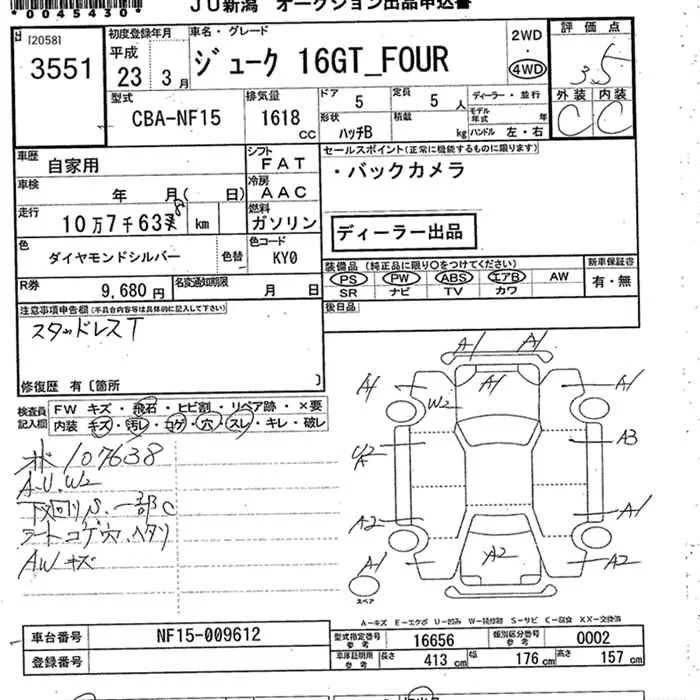 *0045430*
JU新潟 オークション出品申込書
[2058]
3551
初度登録年月
平成
23年 3月
車名・グレード
ジューク 16GT_FOUR
2WD
・
4WD
評価点
3.5
型式
CBA-NF15
排気量
1618
CC
ドア
5
定員
5人
形状
ハッチB
積載
kg
ディーラー・並行
モデル年式 年
ハンドル 左・右
外装 内装
C C
車歴
自家用
シフト
FAT
車検
年 月( 日)
冷房
AAC
走行
10万7千638 km
燃料
ガソリン
色
ダイヤモンドシルバー
色替
色コード
KY0
R券
9,680円
名変通知期限
月 日
セールスポイント(正常に機能するものに限ります)
・バックカメラ
ディーラー出品
装備品(純正品に限り○をつけてください)
PS PW ABS エアB AW
SR ナビ TV カワ
新車保証書
有・無
後日品
注意事項申告欄(不具合内容等は具体的に記入して下さい)
スタッドレスT
修復歴 有〔箇所 〕
検査員
記入欄
FW キズ・飛石・ヒビ割・リペア跡・×要
内装 キズ・汚レ・コゲ・穴・スレ・キレ・破レ
107638
A.U.W2
下回りS 一部C
シートコゲ穴、ヘタリ
AWキズ
A1
A1
A1
A1
A1
W2
A3
A2
A1
A1
A2
A2
スペア
A-キズ E-エクボ U-凹み W-補修跡 S-サビ C-腐食 XX-交換済
車台番号
NF15-009612
登録番号
型式指定番号
参考
16656
類別区分番号
参考
0002
車庫証明所
参考
長さ
413 cm
幅
176 cm
高さ
157 cm